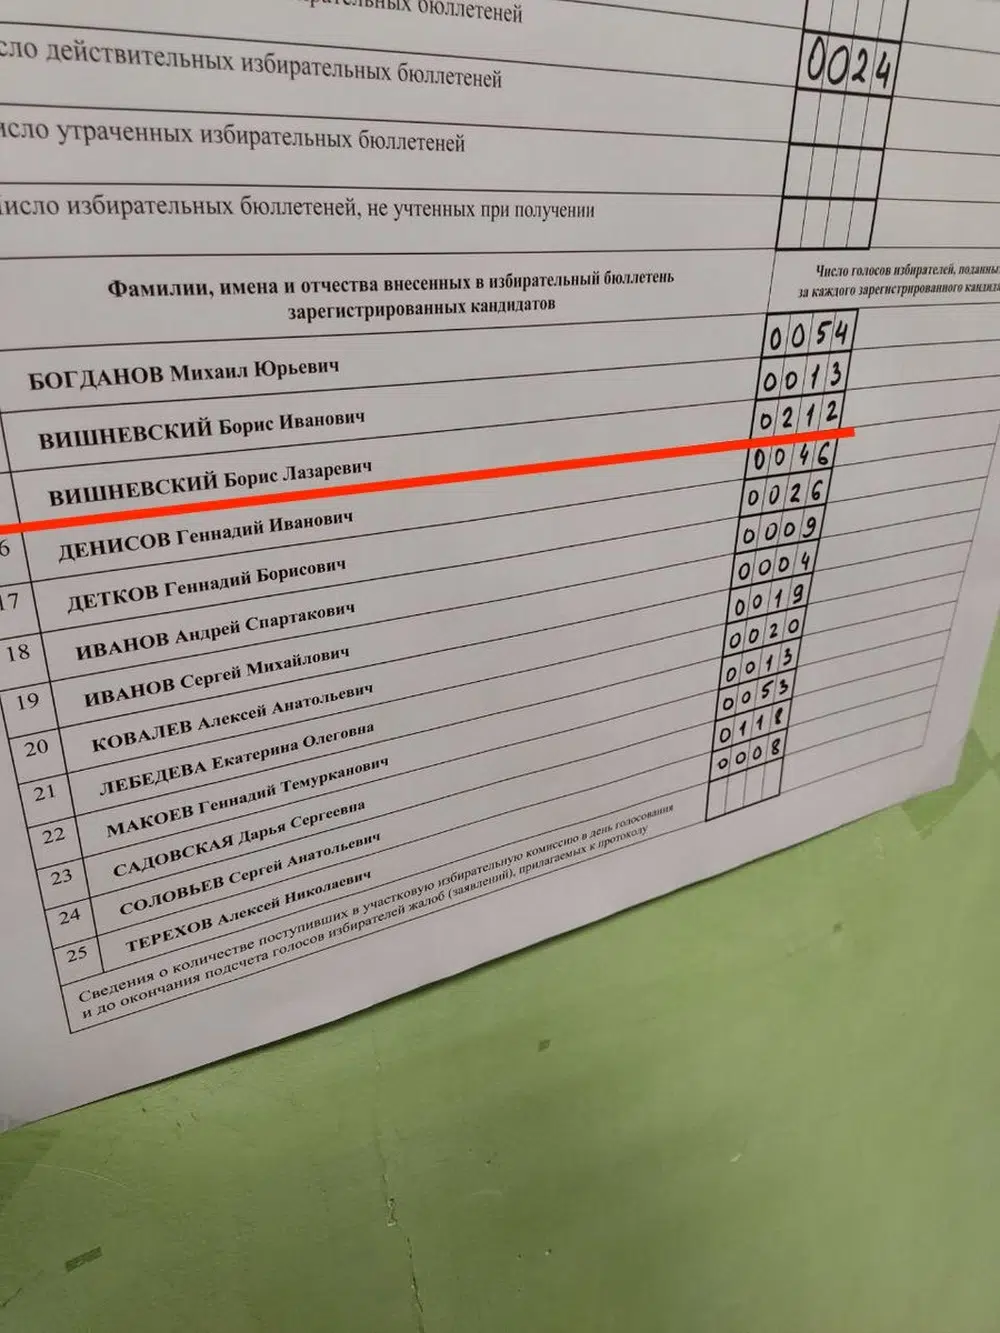 рательных бюллетеней
сло действительных избирательных бюллетеней 0024
исло утраченных избирательных бюллетеней
исло избирательных бюллетеней, не учтенных при получении
Фамилии, имена и отчества внесенных в избирательный бюллетень
зарегистрированных кандидатов
Число голосов избирателей, поданны
за каждого зарегистрированного кандида
БОГДАНОВ Михаил Юрьевич 0054
ВИШНЕВСКИЙ Борис Иванович 0013
ВИШНЕВСКИЙ Борис Лазаревич 0212
6 ДЕНИСОВ Геннадий Иванович 0046
17 ДЕТКОВ Геннадий Борисович 0026
18 ИВАНОВ Андрей Спартакович 0009
19 ИВАНОВ Сергей Михайлович 0004
20 КОВАЛЕВ Алексей Анатольевич 0019
21 ЛЕБЕДЕВА Екатерина Олеговна 0020
22 МАКОЕВ Геннадий Темурканович 0013
23 САДОВСКАЯ Дарья Сергеевна 0053
24 СОЛОВЬЕВ Сергей Анатольевич 0118
25 ТЕРЕХОВ Алексей Николаевич 0008
Сведения о количестве поступивших в участковую избирательную комиссию в день голосования
и до окончания подсчета голосов избирателей жалоб (заявлений), прилагаемых к протоколу